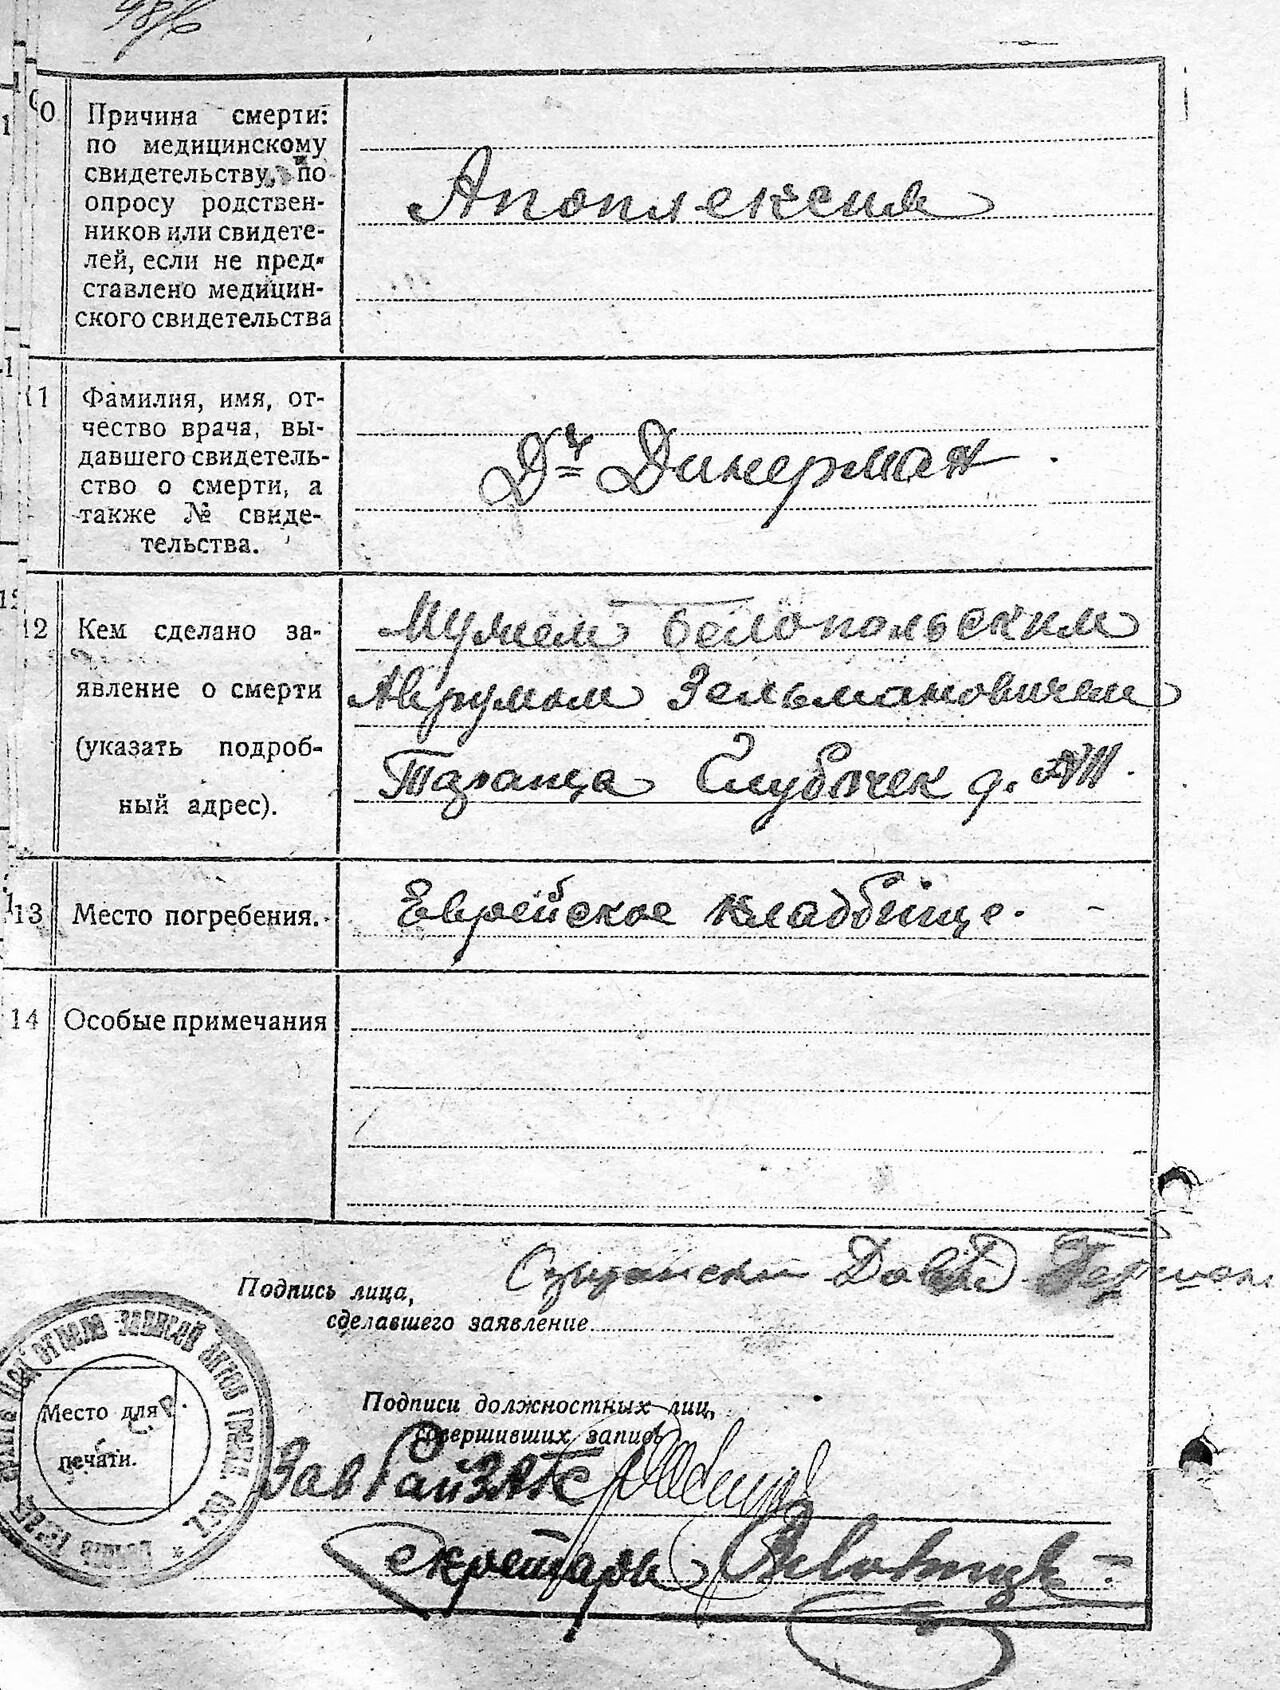 10 Причина смерти:
по медицинскому
свидетельству, по
опросу родствен-
ников или свидете-
лей, если не пред-
ставлено медицин-
ского свидетельства
Апоплексия
11 Фамилия, имя, от-
чество врача, вы-
давшего свидетель-
ство о смерти, а
также № свиде-
тельства.
Дъ Динерман.
12 Кем сделано за-
явление о смерти
(указать подроб-
ный адрес).
Мужем Белопольским
Аврумом Зельмановичем
Глубочек д.
13 Место погребения.
Еврейское кладбище.
14 Особые примечания
Давид
Подпись лица,
сделавшего заявление
Подписи должностных лиц,
совершивших запись
Место для
печати.
Зав РайЗАГС
Секретарь